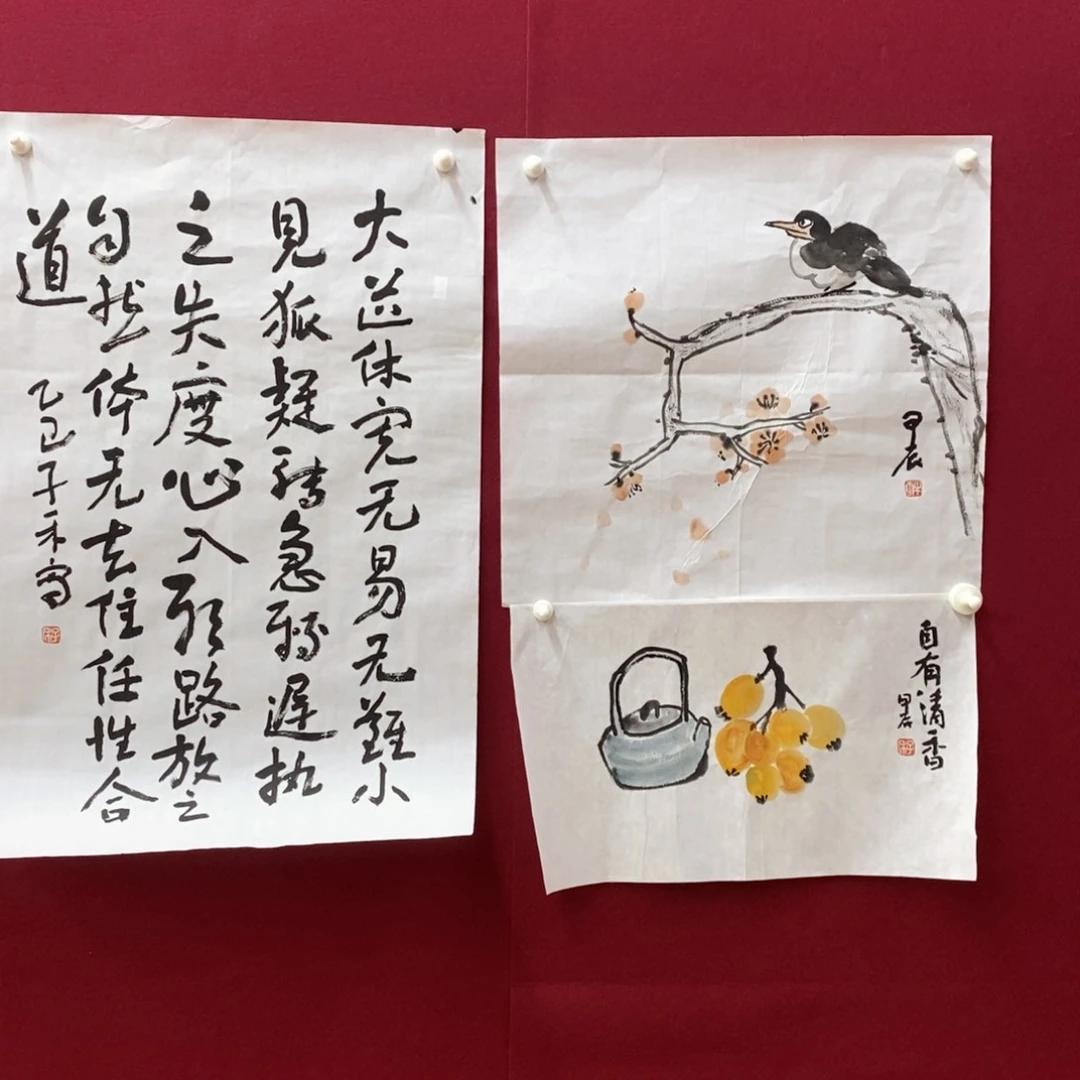 大道体宽无易无難小
見狐疑转急转遲执
之失度必入邪路放之
自然体无去住任性合
道
乙巳子禾写
甲辰
自有清香
甲辰